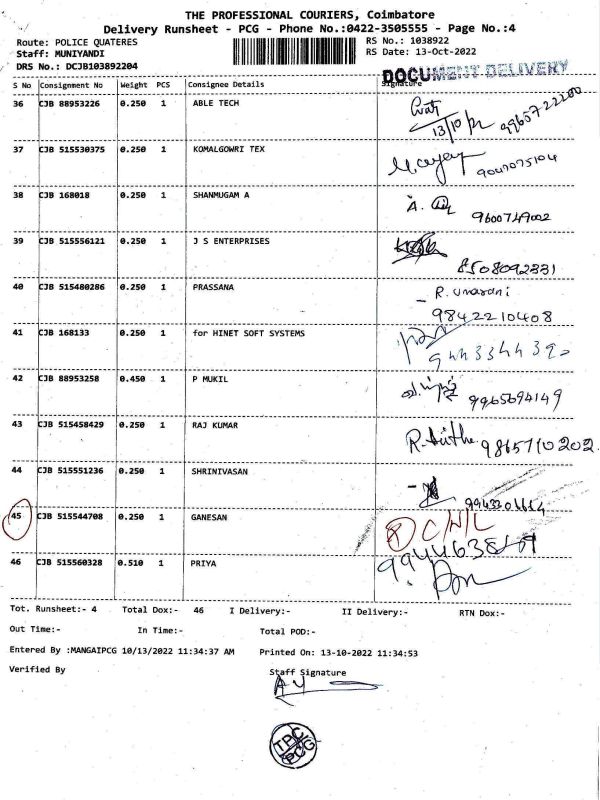 THE PROFESSIONAL COURIERS, Coimbatore
Delivery Runsheet - PCG - Phone No.:0422-3505555 - Page No.:4
Route: POLICE QUATERES
RS No.: 1038922
Staff: MUNIYANDI
RS Date: 13-Oct-2022
DRS No.: DCJB103892204
DOCUMENT DELIVERY
S No Consignment No Weight PCS Consignee Details Signature
36 CJB 88953226 0.250 1 ABLE TECH
13/10/22 9965722200
37 CJB 515530375 0.250 1 KOMALGOWRI TEX
9047075104
38 CJB 168018 0.250 1 SHANMUGAM A
A.
9600749002
39 CJB 515556121 0.250 1 J S ENTERPRISES
8508092331
40 CJB 515480286 0.250 1 PRASSANA
9842210408
41 CJB 168133 0.250 1 for HINET SOFT SYSTEMS
42 CJB 88953258 0.450 1 P MUKIL
9965694149
43 CJB 515458429 0.250 1 RAJ KUMAR
9865710202
44 CJB 515551236 0.250 1 SHRINIVASAN
45 CJB 515544708 0.250 1 GANESAN
46 CJB 515560328 0.510 1 PRIYA
Tot. Runsheet:- 4 Total Dox:- 46 I Delivery:- II Delivery:- RTN Dox:-
Out Time:- In Time:- Total POD:-
Entered By :MANGAIPCG 10/13/2022 11:34:37 AM Printed On: 13-10-2022 11:34:53
Verified By
Staff Signature
TPC
PCG